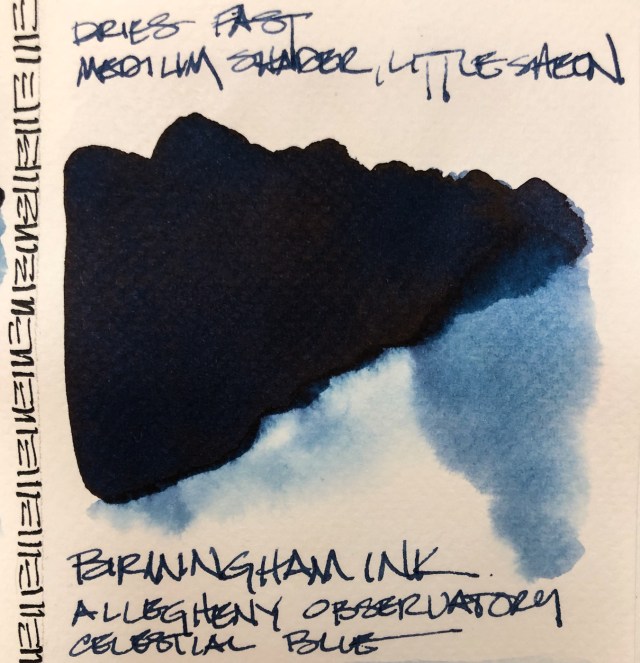 DRIES FAST
MEDIUM SHADER, LITTLE SHEEN
BIRMINGHAM INK.
ALLEGHENY OBSERVATORY
CELESTIAL BLUE